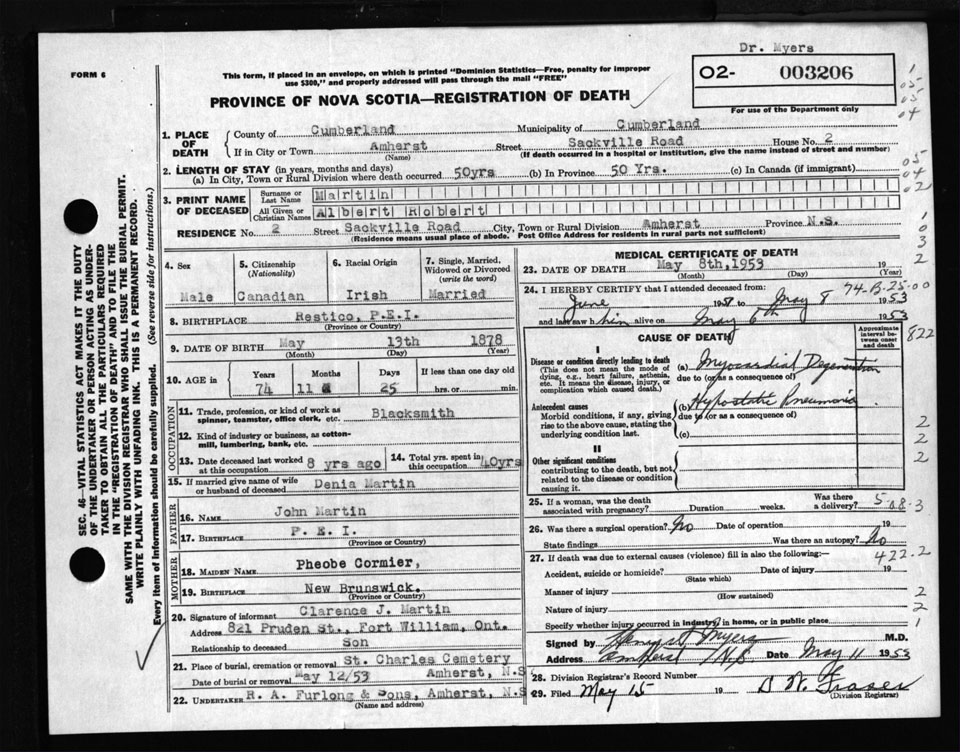 Dr. Myers
FORM 6
This form, if placed in an envelope, on which is printed "Dominion Statistics—Free, penalty for improper
use $300," and properly addressed will pass through the mail "FREE"
02- 003206
For use of the Department only
PROVINCE OF NOVA SCOTIA—REGISTRATION OF DEATH
1. PLACE OF DEATH
County of Cumberland Municipality of Cumberland
If in City or Town Amherst Street Sackville Road House No. 2
(Name) (If death occurred in a hospital or institution, give the name instead of street and number)
2. LENGTH OF STAY (in years, months and days)
(a) In City, Town or Rural Division where death occurred 50yrs (b) In Province 50 Yrs. (c) In Canada (if immigrant)
3. PRINT NAME OF DECEASED
Surname or Last Name Martin
All Given or Christian Names Albert Robert
RESIDENCE No. 2 Street Sackville Road City, Town or Rural Division Amherst Province N.S.
(Residence means usual place of abode. Post Office Address for residents in rural parts not sufficient)
4. Sex
Male
5. Citizenship
(Nationality)
Canadian
6. Racial Origin
Irish
7. Single, Married,
Widowed or Divorced
(write the word)
Married
8. BIRTHPLACE Restico, P.E.I.
(Province or Country)
9. DATE OF BIRTH May 13th 1878
(Month) (Day) (Year)
10. AGE in Years Months Days If less than one day old
74 11 25 hrs. or min.
OCCUPATION
11. Trade, profession, or kind of work as
spinner, teamster, office clerk, etc. Blacksmith
12. Kind of industry or business, as cotton-
mill, lumbering, bank, etc.
13. Date deceased last worked
at this occupation 8 yrs ago
14. Total yrs. spent in
this occupation 40yrs
15. If married give name of wife
or husband of deceased Denia Martin
FATHER
16. NAME John Martin
17. BIRTHPLACE P.E.I.
(Province or Country)
MOTHER
18. MAIDEN NAME Pheobe Cormier,
19. BIRTHPLACE New Brunswick.
(Province or Country)
20. Signature of informant Clarence J. Martin
Address 821 Pruden St., Fort William, Ont.
Relationship to deceased Son
21. Place of burial, cremation or removal St. Charles Cemetery
Date of burial or removal May 12/53 Amherst, N.S
22. UNDERTAKER R. A. Furlong & Sons, Amherst, N.S
(Name and address)
MEDICAL CERTIFICATE OF DEATH
23. DATE OF DEATH May 8th,1953 19
(Month) (Day) (Year)
74-B-25-00
24. I HEREBY CERTIFY that I attended deceased from:
June to May 8 1953
and last saw him alive on May 6th 1953
CAUSE OF DEATH
Approximate
interval be-
tween onset
and death
I
Disease or condition directly leading to death
(This does not mean the mode of
dying, e.g., heart failure, asthenia,
etc. It means the disease, injury, or
complication which caused death.)
(a) Myocardial Degeneration
due to (or as a consequence of)
Antecedent causes
Morbid conditions, if any, giving
rise to the above cause, stating the
underlying condition last.
(b) Hypostatic Pneumonia
due to (or as a consequence of)
(c)
II
Other significant conditions
contributing to the death, but not
related to the disease or condition
causing it.
25. If a woman, was the death
associated with pregnancy? Duration weeks. Was there
a delivery?
5-08-3
26. Was there a surgical operation? No Date of operation 19
State findings Was there an autopsy? No
27. If death was due to external causes (violence) fill in also the following:—
422-2
Accident, suicide or homicide? Date of injury 19
(State which)
Manner of injury
(How sustained)
Nature of injury
Specify whether injury occurred in industry, in home, or in public place
Signed by Myers M.D.
Address Amherst N.S Date May 11 1953
28. Division Registrar's Record Number
29. Filed May 15 19 Fraser
(Division Registrar)
822
SEC. 46—VITAL STATISTICS ACT MAKES IT THE DUTY
OF THE UNDERTAKER OR PERSON ACTING AS UNDER-
TAKER TO OBTAIN ALL THE PARTICULARS REQUIRED
IN THE "REGISTRATION OF DEATH" AND TO FILE THE
SAME WITH THE DIVISION REGISTRAR WHO SHALL ISSUE THE BURIAL PERMIT.
WRITE PLAINLY WITH UNFADING INK. THIS IS A PERMANENT RECORD.
Every item of Information should be carefully supplied. (See reverse side for instructions.)